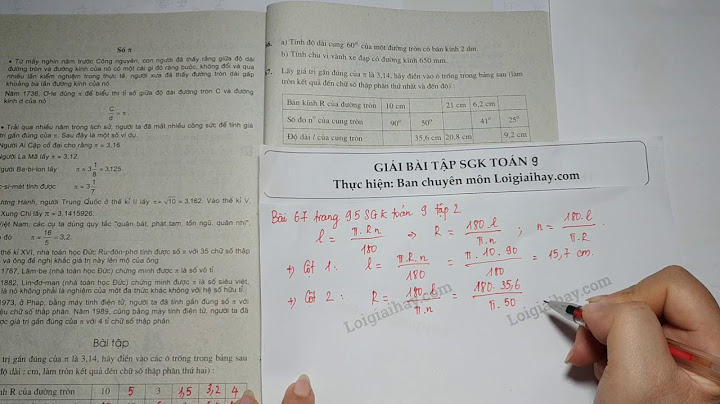 Số π
• Từ mấy nghìn năm trước Công nguyên, con người đã thấy rằng giữa độ dài
đường tròn và đường kính của nó có một cái gì đó ràng buộc, không đổi và qua
nhiều lần kiểm nghiệm trong thực tế, người xưa đã thấy đường tròn dài gấp
khoảng ba lần đường kính của nó.
Năm 1736, Ơ-le dùng π để biểu thị tỉ số giữa độ dài đường tròn C và đường
kính d của nó
C/d = π.
• Trải qua nhiều năm trong lịch sử, người ta đã mất nhiều công sức để tính giá
trị gần đúng của π. Sau đây là một số ví dụ.
Người Ai Cập cổ đại cho rằng π ≈ 3,16.
Người La Mã lấy π ≈ 3,12.
Người Ba-bi-lon lấy π ≈ 3 1/8 = 3,125.
c-si-mét tính được π ≈ 3 1/7
ương Hành, người Trung Quốc ở thế kỉ II lấy π ≈ √10 ≈ 3,162. Vào thế kỉ V,
Xung Chi lấy π ≈ 3,1415926.
Việt Nam, các cụ ta dùng quy tắc "quân bát, phát tam, tồn ngũ, quân nhị".
đó π ≈ 16/5 = 3,2.
thế kỉ XVI, nhà toán học Đức Ru-đôn-phơ tính được số π với 35 chữ số thập
và ông đề nghị khắc giá trị này lên mộ của ông
1767, Lăm-be (nhà toán học Đức) chứng minh được π là số vô tỉ.
1882, Lin-đơ-man (nhà toán học Đức) chứng minh được π là số siêu việt,
là nó không phải là nghiệm của một đa thức khác không với hệ số hữu tỉ.
1973, ở Pháp, bằng máy tính điện tử, người ta đã tính gần đúng số π với
iệu chữ số thập phân. Năm 1989, cũng bằng máy tính điện tử, người ta đã
ược giá trị gần đúng của π với 4 tỉ chữ số thập phân.
Bài tập
trị gần đúng của π là 3,14, hãy điền vào các ô trống trong bảng sau
độ dài : cm, làm tròn kết quả đến chữ số thập phân thứ hai) :
nh R của đường tròn 10 5 3 1,5 3,2 4
a) Tính độ dài cung 60° của một đường tròn có bán kính 2 dm.
b) Tính chu vi vành xe đạp có đường kính 650 mm.
Lấy giá trị gần đúng của π là 3,14, hãy điền vào ô trống trong bảng sau (làm
tròn kết quả đến chữ số thập phân thứ nhất và đến độ) :
Bán kính R của đường tròn 10 cm 21 cm 6,2 cm
Số đo n° của cung tròn 90° 50° 41° 25°
Độ dài l của cung tròn 35,6 cm 20,8 cm 9,2 cm
GIẢI BÀI TẬP SGK TOÁN 9
Thực hiện: Ban chuyên môn Loigiaihay.com
Bài 67 trang 95 SGK toán 9 tập 2
l = π.R.n/180 => R = 180.l/π.n ; n = 180.l/π.R .
+) Cột 1: l = π.R.n/180 = π.10.90/180 = 15,7 cm.
+) Cột 2: R = 180.l/π.n = 180.35,6/π.50
Loigiaihay.com
Loigiaihay.com